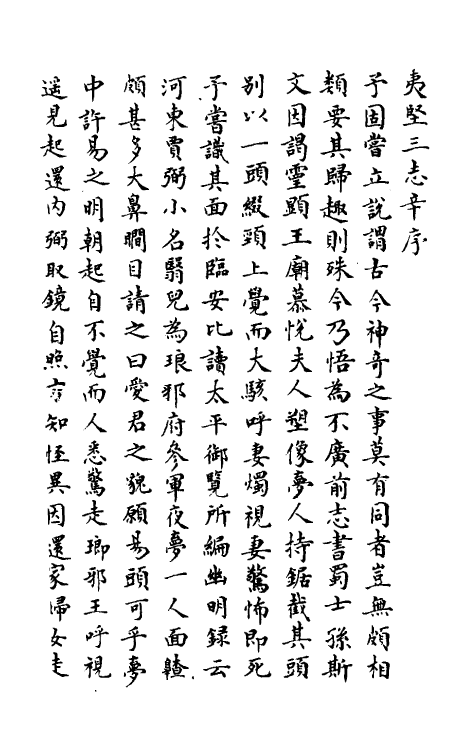 夷堅三志辛序
予固嘗立說謂古今神奇之事莫有同者豈無頗相
類要其歸趣則殊今乃悟為不廣前志書蜀士孫斯
文因謁靈顯王廟慕悅夫人塑像夢人持鋸截其頭
別以一頭綴頸上覺而大駭呼妻燭視妻驚怖即死
予嘗識其面於臨安比讀太平御覽所編幽明錄云
河東賈弼小名翳兒為琅邪府參軍夜夢一人面䶥
頗甚多大鼻瞷目請之曰愛君之貌願易頭可乎夢
中許易之明朝起自不覺而人悉驚走瑯邪王呼視
遥見起還內弼取鏡自照方知怪異因還家婦女走